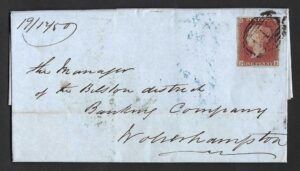 19/12/50
the Manager
of the Bilston district
Banking Company
Wolverhampton